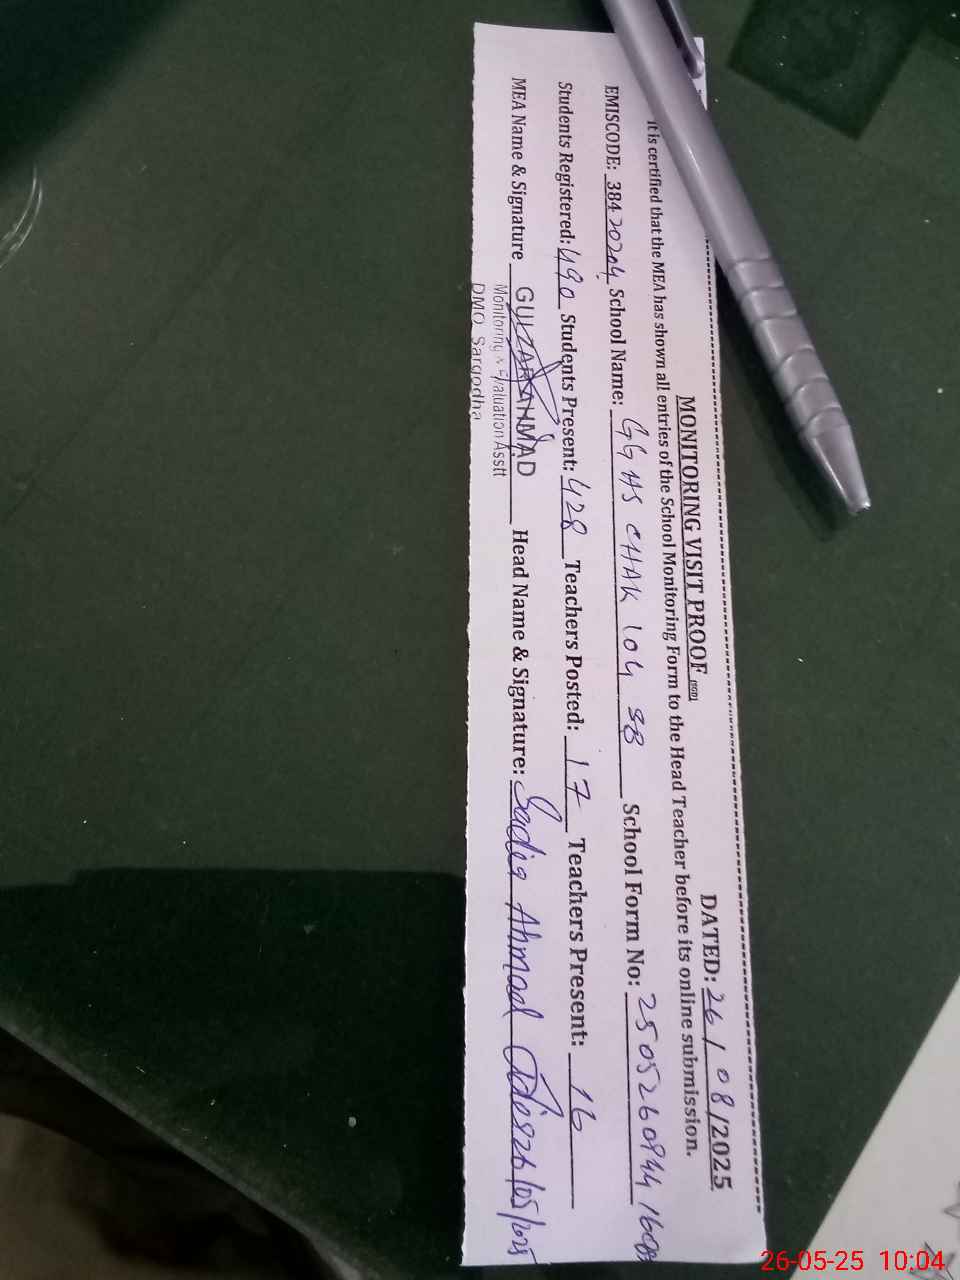 MONITORING VISIT PROOF (SGD) DATED: 26/08/2025
It is certified that the MEA has shown all entries of the School Monitoring Form to the Head Teacher before its online submission.
EMISCODE: 38420204 School Name: GGHS CHAK 104 SB School Form No:
Students Registered: 490 Students Present: 428 Teachers Posted: 17 Teachers Present: 16
MEA Name & Signature GULZAR AHMAD Head Name & Signature: Sadia Ahmad 26/05/2025
Monitoring & Evaluation Asstt
DMO Sargodha
26-05-25 10:04